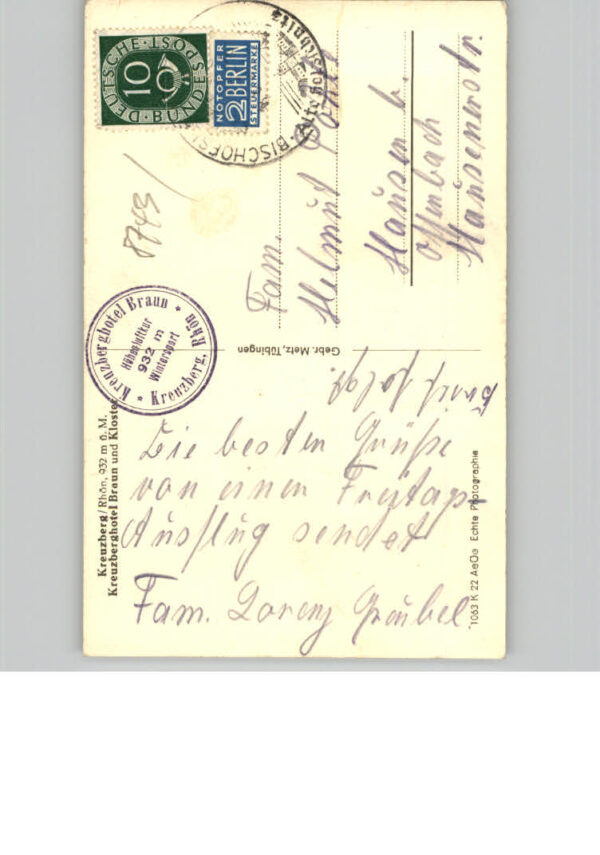 Kreuzberg/Rhön, 932 m ü. M.
Kreuzberghotel Braun und Kloster
Kreuzberghotel Braun
Höhenluftkur
932 m
Wintersport
Kreuzberg, Rhön
8743
DEUTSCHE BUNDESPOST
10
NOTOPFER
2 BERLIN
STEUERMARKE
BISCHOFSH
Die besten Grüße
von einem Freitags-
Ausflug sendet
Fam. Lorenz Gräubel
Brief folgt.
Gebr. Metz, Tübingen
1063 K 22 AeOe Echte Photographie
Fam.
Helmut
Hausen b.
Offenbach
Hausenerstr.